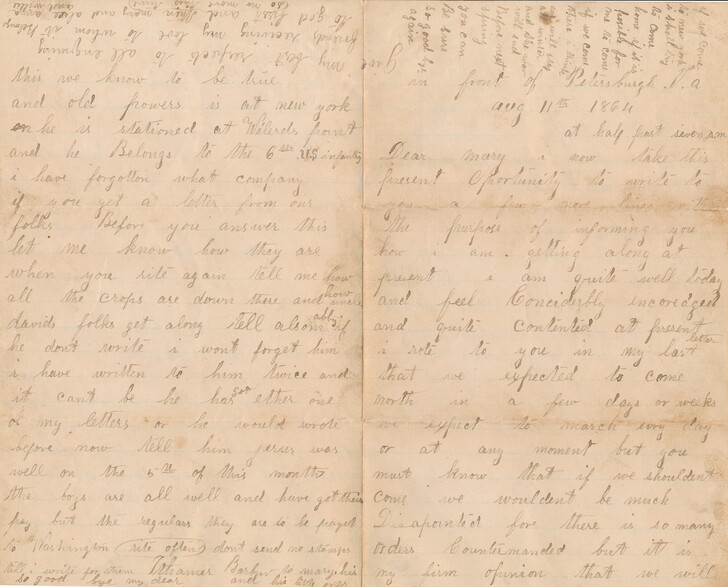 in front of Petersburgh Va
aug 11th 1864
at half past seven, am
Dear mary i now take this
present Oportunity to write to
you a few more lines
the purpose of informing you
how i am getting along at
present i am quite well today
and feel Conciderbly incoreged
and quite contented at present
i rote to you in my last letter
that we expected to come
north in a few days or weeks
we expect to march evry day
or at any moment but you
must know that if we shouldent
come we wouldent be much
Disapointed fore there is so many
orders Countermanded but it is
my firm opinion that we will
this we know to be true
and old powers is at new york
he is stationed at Wilerds point
and he Belongs to the 6th US infantry
i have forgotton what company
if you get a letter from our
folks Before you answer this
let me know how they are
when you rite again tell me how
all the crops are down there and how uncle
davids folks get along tell alson if
he dont write i wont forget him
i have written to him twice and
it cant be he has got ether one
of my letters or he would wrote
before now tell him was
well on the 5th of this month
the boys are all well and have got their
pay but the regulars they are to be payed
to Washington (rite often) dont send no stamps
till i write for them
so good bye my dear and his
my best respects to all enquiring
friends reserving my love to whom it belongs
to god
if we come
to new york
i shall try
to come
home if it is
posible for
me to come
if we come
as i will say
i write
and she wont
next
spring
you can
Be sure
so good by
again